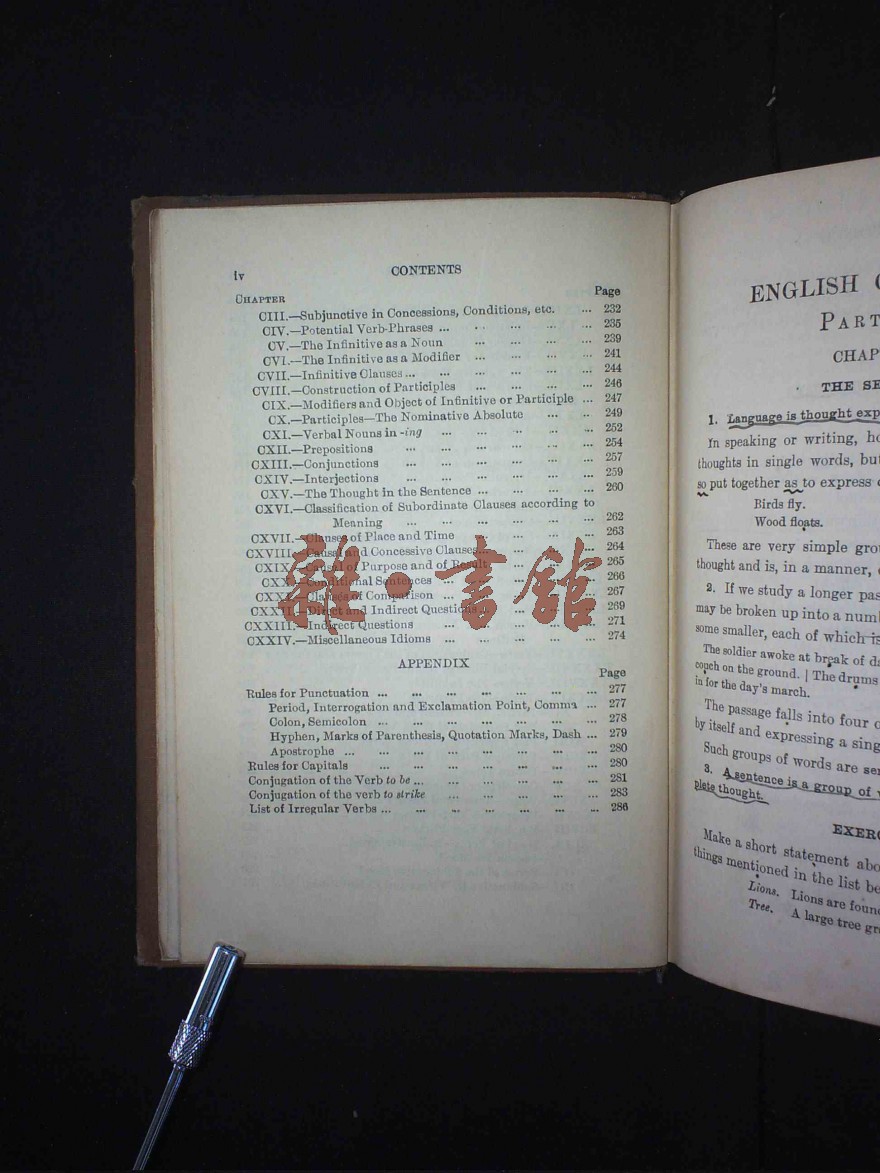 iv
CONTENTS
CHAPTER Page
CIII.—Subjunctive in Concessions, Conditions, etc. ... 232
CIV.—Potential Verb-Phrases ... ... ... ... ... 235
CV.—The Infinitive as a Noun ... ... ... ... 239
CVI.—The Infinitive as a Modifier ... ... ... ... 241
CVII.—Infinitive Clauses ... ... ... ... ... ... 244
CVIII.—Construction of Participles ... ... ... ... 246
CIX.—Modifiers and Object of Infinitive or Participle ... 247
CX.—Participles—The Nominative Absolute ... ... 249
CXI.—Verbal Nouns in -ing ... ... ... ... ... 252
CXII.—Prepositions ... ... ... ... ... ... 254
CXIII.—Conjunctions ... ... ... ... ... ... 257
CXIV.—Interjections ... ... ... ... ... ... 259
CXV.—The Thought in the Sentence ... ... ... ... 260
CXVI.—Classification of Subordinate Clauses according to
Meaning ... ... ... ... ... ... 262
CXVII.—Clauses of Place and Time ... ... ... 263
CXVIII.—Causal and Concessive Clauses... ... ... ... 264
CXIX.—Clauses of Purpose and of Result ... ... ... 265
CXX.—Conditional Sentences ... ... ... ... ... 266
CXXI.—Clauses of Comparison ... ... ... ... ... 267
CXXII.—Direct and Indirect Questions ... ... ... 269
CXXIII.—Indirect Questions ... ... ... ... ... 271
CXXIV.—Miscellaneous Idioms ... ... ... ... ... 274
書館
APPENDIX
Page
Rules for Punctuation ... ... ... ... ... ... ... 277
Period, Interrogation and Exclamation Point, Comma ... 277
Colon, Semicolon ... ... ... ... ... ... ... 278
Hyphen, Marks of Parenthesis, Quotation Marks, Dash ... 279
Apostrophe ... ... ... ... ... ... ... ... 280
Rules for Capitals ... ... ... ... ... ... ... 280
Conjugation of the Verb to be ... ... ... ... ... ... 281
Conjugation of the verb to strike ... ... ... ... ... 283
List of Irregular Verbs ... ... ... ... ... ... ... 286
ENGLISH
PART
CHAP
THE SE
1. Language is thought exp
In speaking or writing, ho
thoughts in single words, but
so put together as to express
Birds fly.
Wood floats.
These are very simple grou
thought and is, in a manner,
2. If we study a longer pas
may be broken up into a num
some smaller, each of which is
The soldier awoke at break of da
couch on the ground. | The drums
in for the day's march.
The passage falls into four
by itself and expressing a sing
Such groups of words are sen
3. A sentence is a group of
plete thought.
EXERC
Make a short statement abo
things mentioned in the list be
Lions. Lions are foun
Tree. A large tree gr